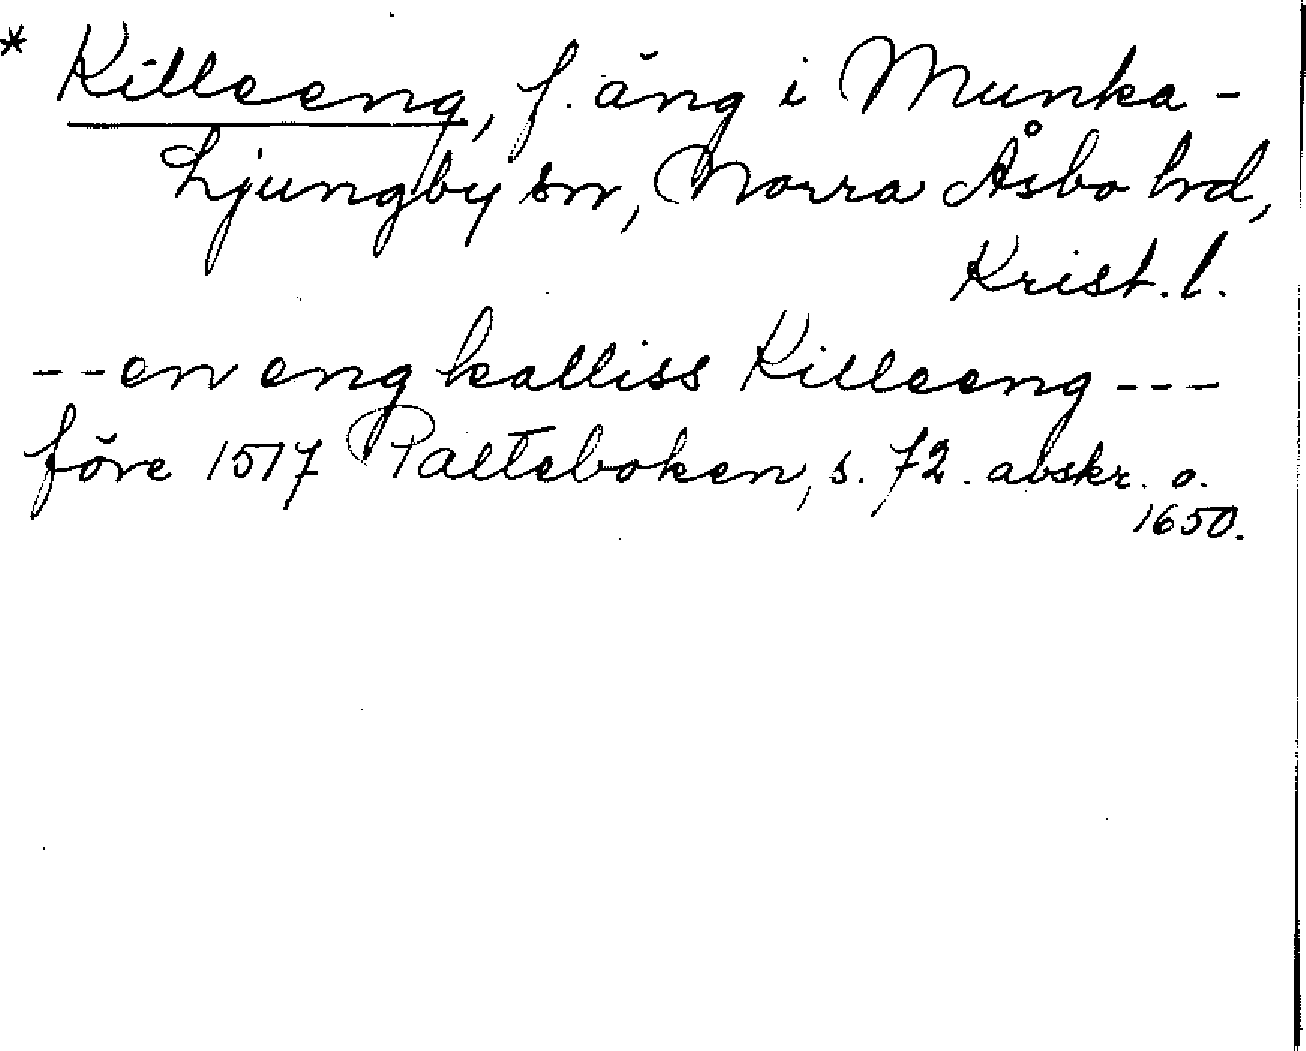 * Killeeng, f. äng i Munka-
Ljungby sn, Norra Åsbo hd,
Krist. l.
--en eng kalliss Killeeng---
före 1517 Palteboken, s. 72. avskr. o.
1650.